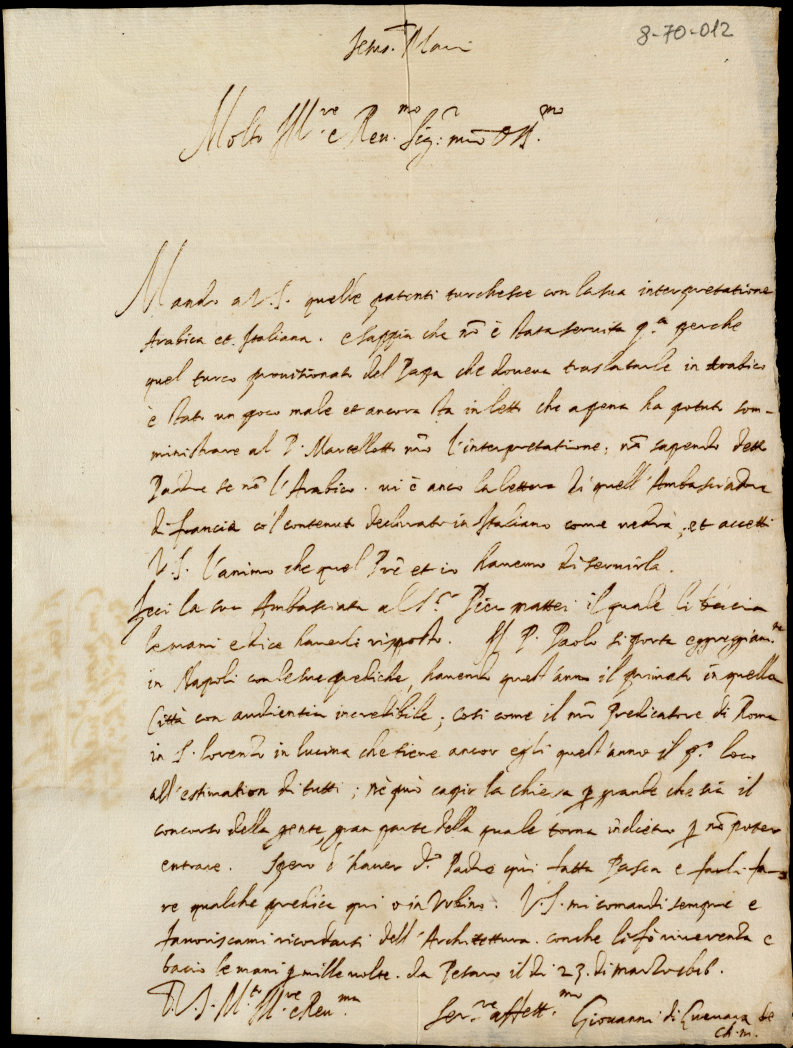 8-70-012
Jesus Maria
Molto Ill.re e Rev.mo Sig.r mio Oss.mo
Mando a V.S. quelle patenti turchesce con la sua interpretatione
Arabica et Italiana. e sappia che nõ è stata servita p.a perche
quel turco provisionato del Papa che doveva traslatarle in Arabico
è stato un poco male et ancora sta in letto che apena ha potuto som-
ministrare al P. Marcellotto nrõ l'interpretatione; nõ sapendo detto
Padre se nõ l'Arabico. vi è anco la lettera di quell'Ambasciadore
di francia co'l contenuto dechiarato in Italiano come vedrà, et accetti
V.S. l'animo che quel Prẽ et io havemo di servirla.
Feci la sua Ambasciata al S.r mattei il quale li bascia
le mani e dice haverli risposto. Il P. Paolo si porta eggregiam.te
in Napoli con le sue prediche, havendo quest'anno il primato in quella
Città con audientia incredibile; così come il nrõ Predicatore di Roma
in S. Lorenzo in lucina che tiene ancor egli quest'anno il p.o loco
all'estimation di tutti; nè può capir la chiesa p grande che sia il
concorso della gente, gran parte della quale torna indietro p nõ poter
entrare. Spero d'haver d.o Padre quì fatta Pasca e farli fa-
re qualche predica qui o in Urbino. V.S. mi comandi sempre e
favoriscami ricordarsi dell'Architettura. con che li fò riverenza e
bacio le mani p mille volte. da Pesaro il dì 23. di marzo 1616.
D. V.S. M.to Ill.re e Rev.ma
Ser.re affett.mo Giovanni di Guevara de
ch. m.